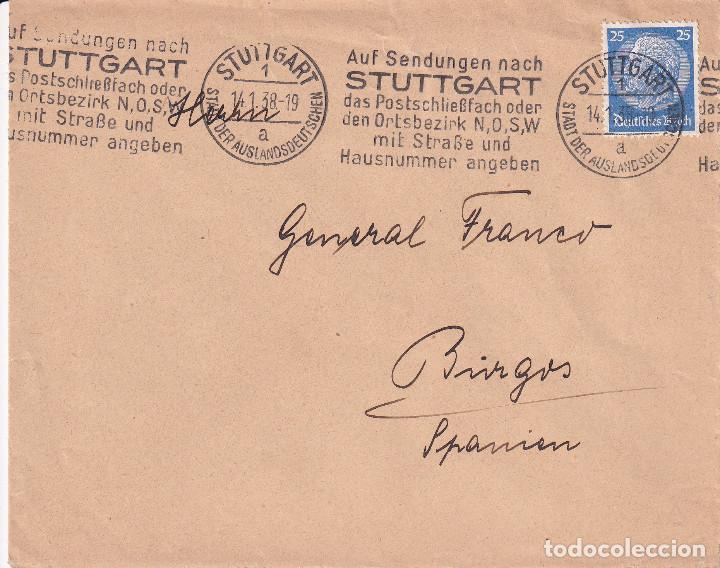 uf Sendungen nach
STUTTGART
s Postschließfach oder
n Ortsbezirk N,O,S,W
mit Straße und
usnummer angeben
STUTTGART
1
14.1.38-19
a
STADT DER AUSLANDSDEUTSCHEN
Hahn
Auf Sendungen nach
STUTTGART
das Postschließfach oder
den Ortsbezirk N,O,S,W
mit Straße und
Hausnummer angeben
25 25
Deutsches Reich
STUTTGART
1
14.1
a
STADT DER AUSLANDSDEUTSCHEN
Au
S
das
den
Ha
General Franco
Burgos
Spanien
todocoleccion